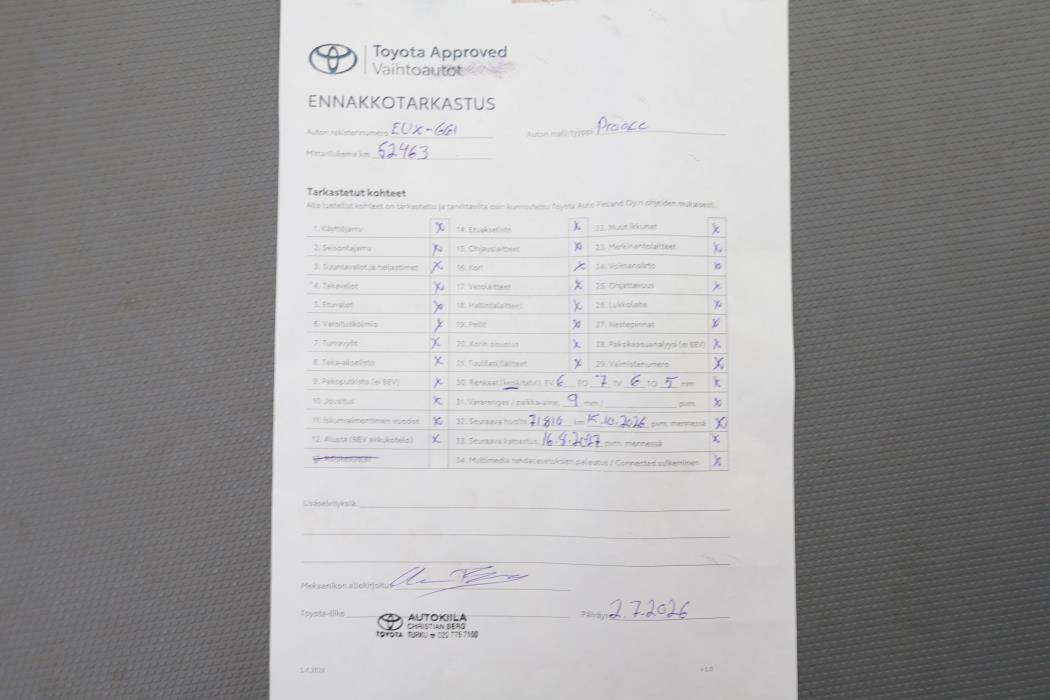 Toyota Approved
Vaihtoautot
ENNAKKOTARKASTUS
Auton rekisterinumero EUX-GGI Auton malli/tyyppi Proace
Mittarilukema km 52463
Tarkastetut kohteet
Alla luetellut kohteet on tarkastettu ja tarvittavilta osin kunnostettu Toyota Auto Finland Oy:n ohjeiden mukaisesti.
1. Käyttöjarru x 14. Etuakselisto x 22. Muut ikkunat x
2. Seisontajarru x 15. Ohjauslaitteet x 23. Merkinantolaitteet x
3. Suuntavalot ja heijastimet x 16. Kori x 24. Voimansiirto x
4. Takavalot x 17. Vetolaitteet x 25. Ohjattavuus x
5. Etuvalot x 18. Hallintalaitteet x 26. Lukkolaite x
6. Varoituskolmio x 19. Peilit x 27. Nestepinnat x
7. Turvavyöt x 20. Korin sisustus x 28. Pakokaasuanalyysi (ei BEV) x
8. Taka-akselisto x 21. Tuulilasi/laitteet x 29. Valmistenumero x
9. Pakoputkisto (ei BEV) x 30. Renkaat (kesä/talvi), EV 6 EO 7 TV 6 TO 5 mm x
10. Jousitus x 31. Vararengas / paikka-aine, 9 mm / pvm. x
11. Iskunvaimentimien vuodot x 32. Seuraava huolto 71810 km 15.10.2026 pvm. mennessä x
12. Alusta (BEV akkukotelo) x 33. Seuraava katsastus, 16.8.2027 pvm. mennessä x
34. Multimedia tehdasasetuksien palautus / Connected sulkeminen x
Lisäselvityksiä:
Mekaanikon allekirjoitus
Toyota-liike Päiväys 2.7.2026
AUTOKIILA
CHRISTIAN BERG
TOYOTA TURKU ☎ 020 776 7100
1.4.2024 v1.0